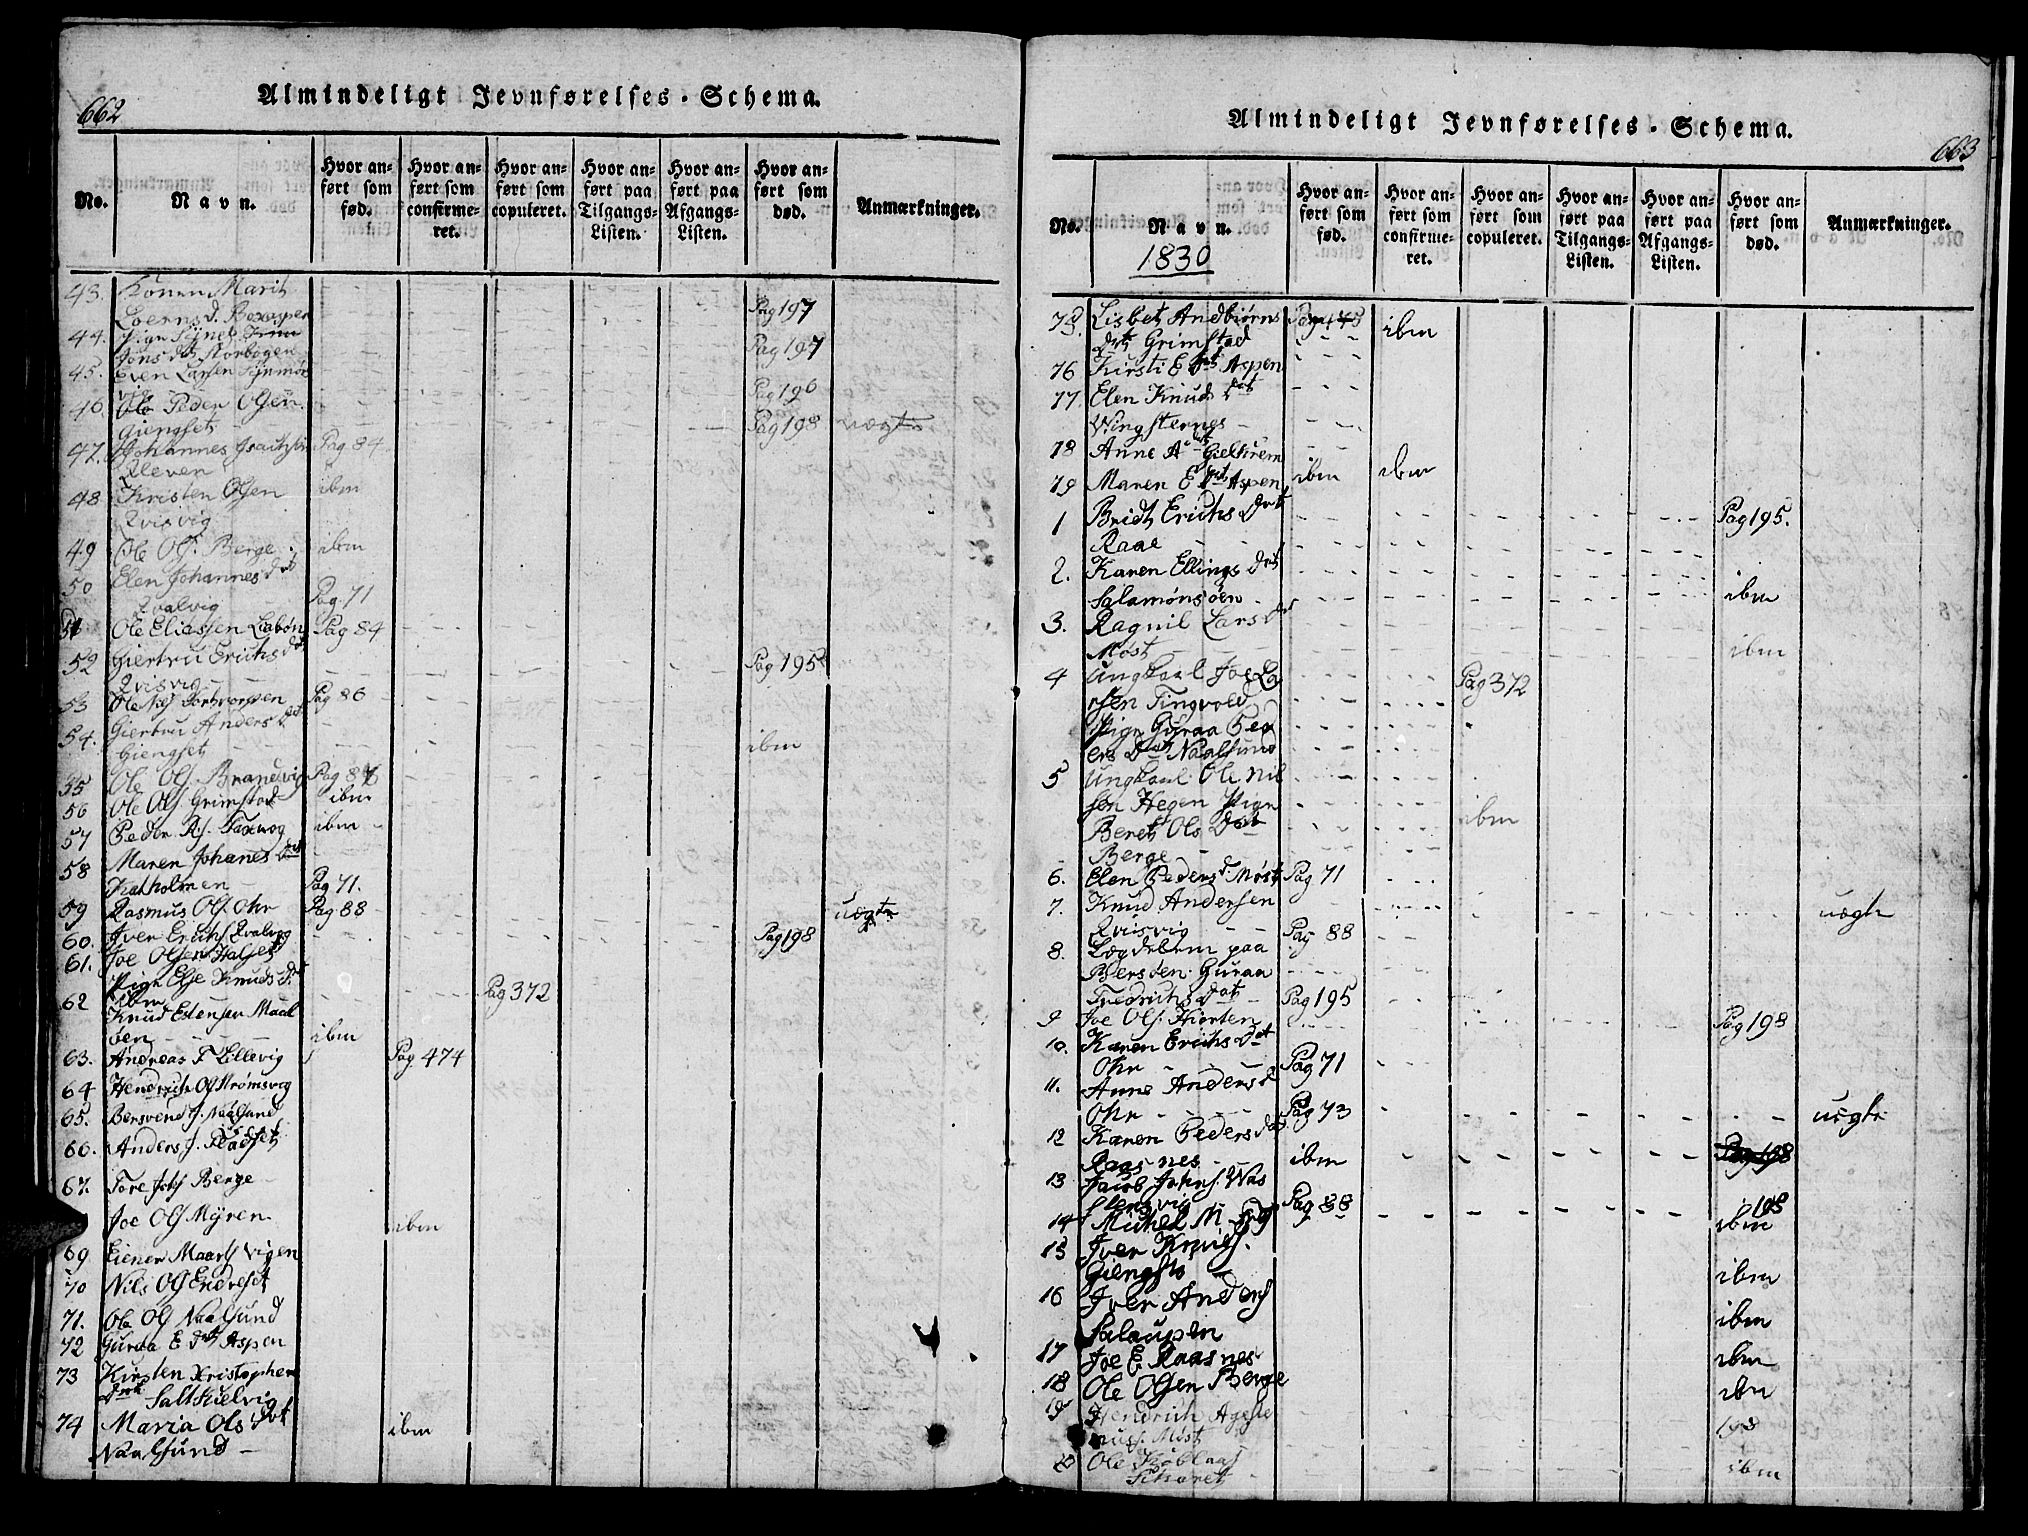 662
Almindeligt Jevnførelses-Schema.
No.
Navn.
Hvor anført som fød.
Hvor anført som confirmeret.
Hvor anført som copuleret.
Hvor anført paa Tilgangs-Listen.
Hvor anført paa Afgangs-Listen.
Hvor anført som død.
Anmærkninger.
43. Konen Marit
Pag 197
44.
Jons dat Storbogen Pag 197
45. Even Larsen
Pag 196
46. Ole Peder Olsen
Giengset Pag 198 uægte
47. Johannes Pag 84
48 Kristen Olsen ibm
Qvisvig
49 Ole Ols. Berge ibm
50 Elen Johannes dat
Qvalvig Pag. 71
51 Ole Eliassen Pag 84
52 Giertru Erichs dat Pag 195
Qvisvig
53 Pag 86
54. Giertru Anders dat
Giengset ibm
55 Ole Ols. Brandvig Pag 86
56 Ole Ols. Grimstad ibm
57 Peder ibm
58 Maren Johanes dat
Kalholmen Pag 71.
59 Rasmus Ols. Ohr Pag 88 uægte
60. Iver Erichs Qvalvig Pag 198
61. Joe Olsen Halset
Pige Else Knuds d.
ibm Pag 372
62 Knud Estensen Maal
øen ibm
63. Andreas F Lillevig Pag. 474
64 Hendrich Ols
65. Bersvend J. Naalsund
66. Anders J.
67. Tore Johs Berge
Joe Ols Myren ibm
69 Eiener Maars Vigen
70 Nils Ols Endreset
71. Ole Ols Naalsund
72 Guraa E dat Aspen
73 Kirsten Kristopher
dat Saltkielvig
74 Maria Ols dat ibm
Naalsund
Almindeligt Jevnførelses-Schema.
663
No.
Navn.
1830
Hvor anført som fød.
Hvor anført som confirmeret.
Hvor anført som copuleret.
Hvor anført paa Tilgangs-Listen.
Hvor anført paa Afgangs-Listen.
Hvor anført som død.
Anmærkninger.
75. Lisbet Andbiørns ibm
dat Grimstad
76 Kirsti E dat Aspen
77. Elen Knuds dat
Wingsternes
78 Anne A dat
79 Maren E dat Aspen ibm ibm
1 Bridt Erichs dat Pag 195.
Raae
2. Karen Ellings dat
Salamonsøen ibm
3. Ragnil Lars dat
Møst ibm
4 Ungkarl Joe La Pag 372
rsen Tingvold
Pige Guraa Ped
ers dat Naalsund
5 Ungkarl Ole Nil
sen Hegen Pige
Beret Ols dat ibm
Berge
6. Elen Peders d. Møst Pag 71
7. Knud Andersen uægte
Qvisvig Pag 88
8. Lægdslem paa
Bersøen. Guraa
Fredrichs dat Pag 195
9 Joe Ols. Hiorten Pag 198
10. Karen Erichs dat
Ohr Pag 71
11. Anne Anders d
Ohr Pag 73 uægte
12 Karen Peders dat
Raasnes ibm Pag 198
13 Jacob Johns. Was
stenvig Pag 88 198
14 Michel M ibm
15 Iver Knuds.
Giengsto ibm
16 Iver Anders
Salaupen ibm
17 Joe E. Raasnes ibm
18 Ole Olsen Berge ibm
19 Hendrich 198
Møst
20 Ole ibm